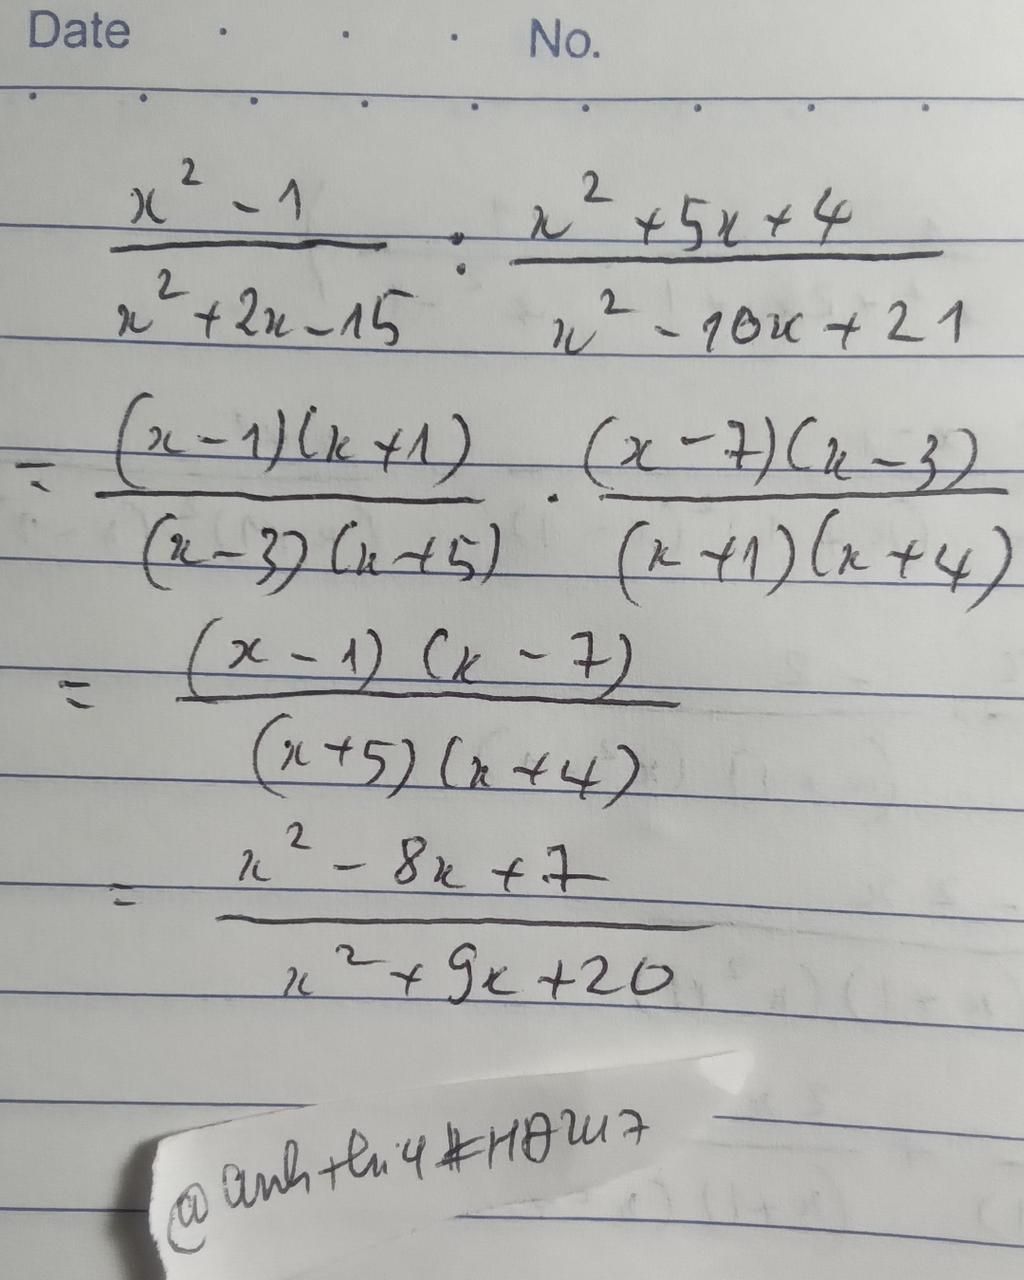 Date No.
x² - 1 / x² + 2x - 15 : x² + 5x + 4 / x² - 10x + 21
= (x - 1)(x + 1) / (x - 3)(x + 5) · (x - 7)(x - 3) / (x + 1)(x + 4)
= (x - 1)(x - 7) / (x + 5)(x + 4)
= x² - 8x + 7 / x² + 9x + 20